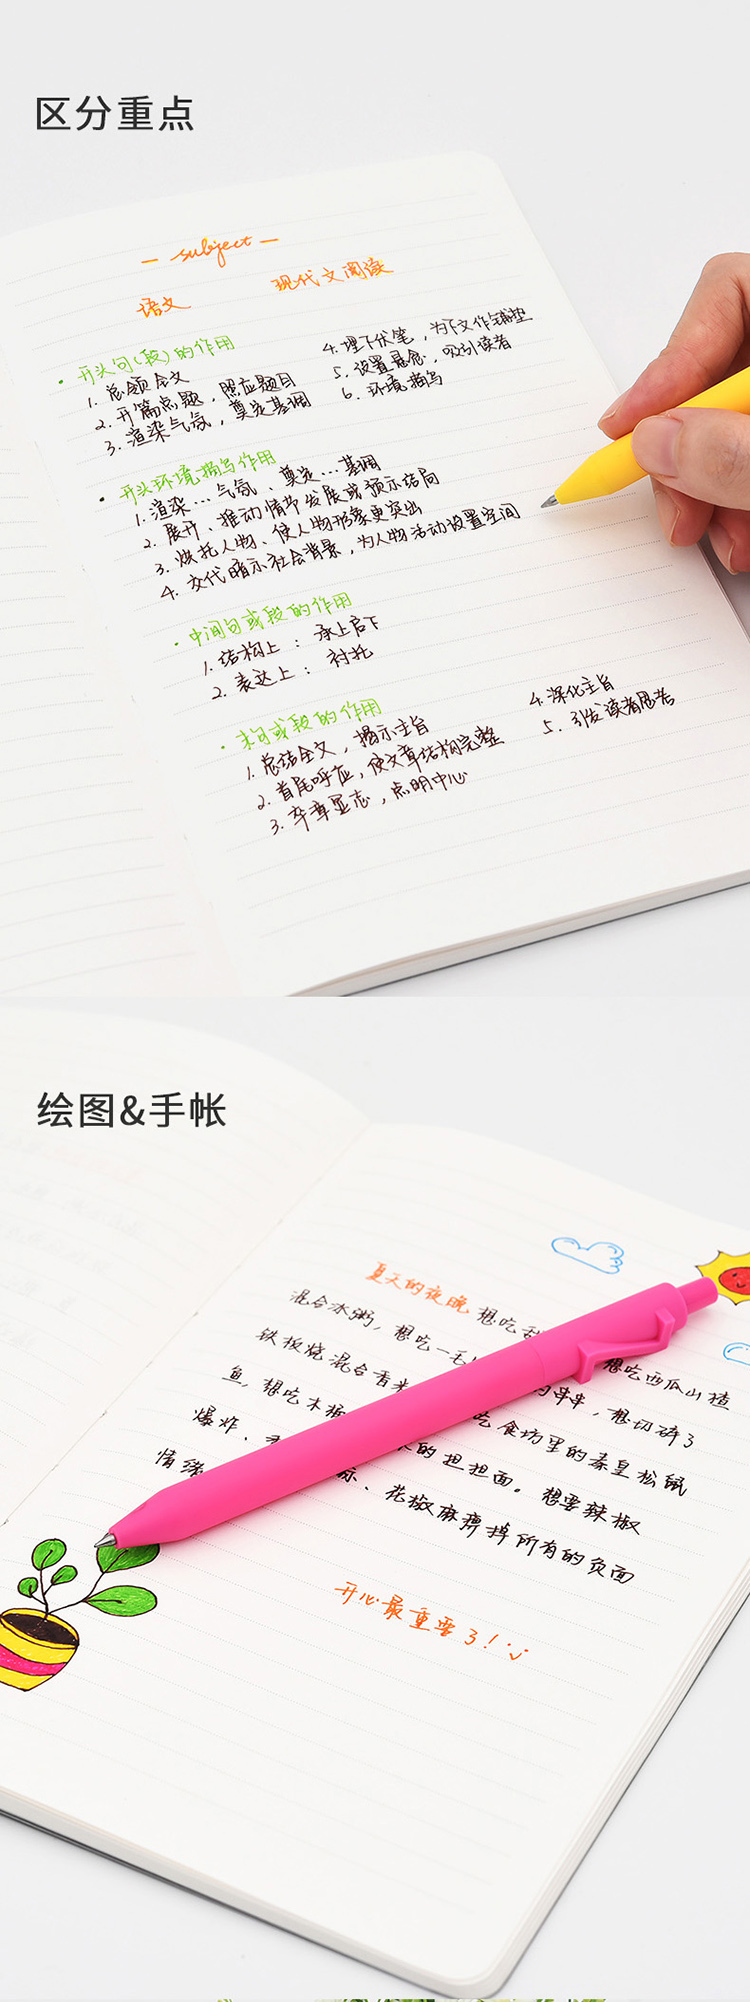 区分重点
— subject —
语文 现代文阅读
· 开头句(段)的作用
1. 总领全文
2. 开篇点题，照应题目
3. 渲染气氛，奠定基调
4. 埋下伏笔，为下文作铺垫
5. 设置悬念，吸引读者
6. 环境描写
· 开头环境描写作用
1. 渲染…气氛、奠定…基调
2. 展开、推动情节发展或预示结局
3. 烘托人物、使人物形象更突出
4. 交代暗示社会背景，为人物活动设置空间
· 中间句或段的作用
1. 结构上：承上启下
2. 表达上：衬托
· 末句或段的作用
1. 总结全文，揭示主旨
2. 首尾呼应，使文章结构完整
3. 卒章显志，点明中心
4. 深化主旨
5. 引发读者思考
绘图&手帐
夏天的夜晚 想吃 想吃西瓜山楂
混合冰粥，想吃一 串串，想切碎了
铁板烧混合香米 吃食坊里的秦皇松鼠
鱼，想吃木桶 的担担面。想要辣椒
爆炸、 、花椒麻痹掉所有的负面
情绪
开心最重要了！